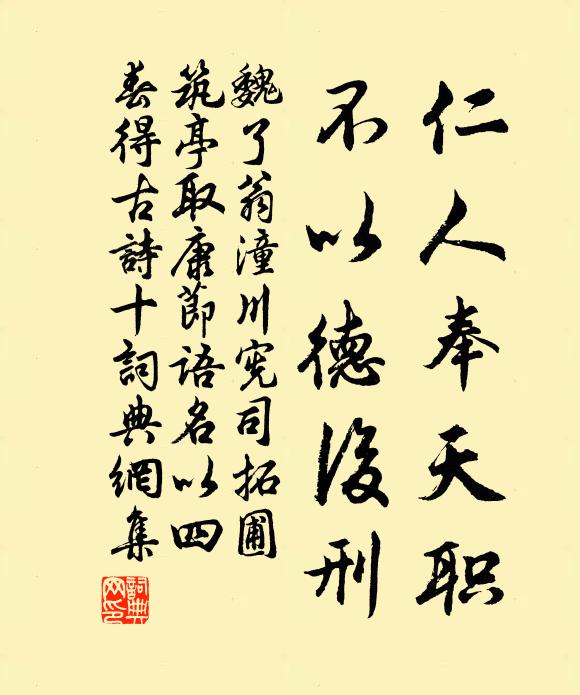 仁人奉天职
不以德後刑
魏了翁潼川宪司拓圃
筑亭取康節语名以四
春得古詩十詞典網集
詞典网印